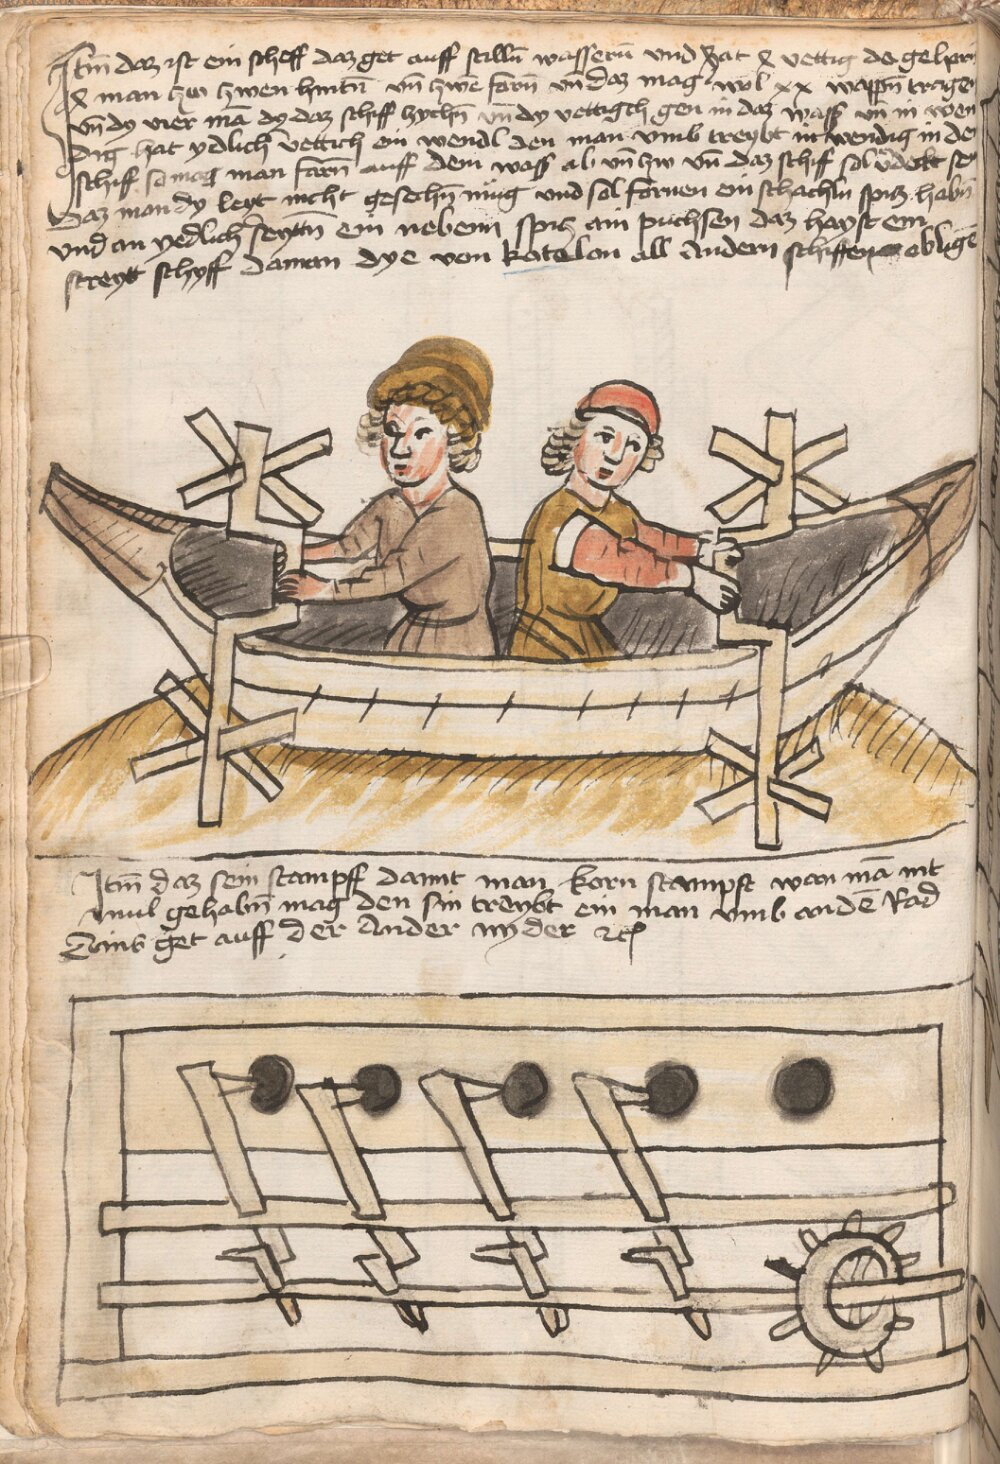 Itm̄ daz ist ein scheff daz get auff stilln̄ wassern̄ und hat
man zw zwen hintn̄ vn̄ zwe forn̄ vn̄ daz mag wol xx wappn̄ trage
vn̄ dy vier mā dy daz schiff zychn̄ vn̄ dy vettigch gen in daz wass vn̄ in wen
dig hat ydlich vettich ein wendl den man vmb treybt inwendig in de
schiff so mag man farn̄ auff dem wass ab vn̄ zw vn̄ daz schiff sol v̄deckt sey
Daz man dy leyt nicht gesechn̄ mug und sol fornen ein schachln spicz habn̄
und an yedlich seyttn̄ ein nebenn spicz ain puchsen daz hayst ein
streytt schyff daman dye von katelon all andern schiffen oblige
Itm̄ daz sein stampff damit man korn stampft wan mā nit
mul gehabn̄ mag den sin treybt ein man vmb an dē Rad
Eins get auff der Ander nyder